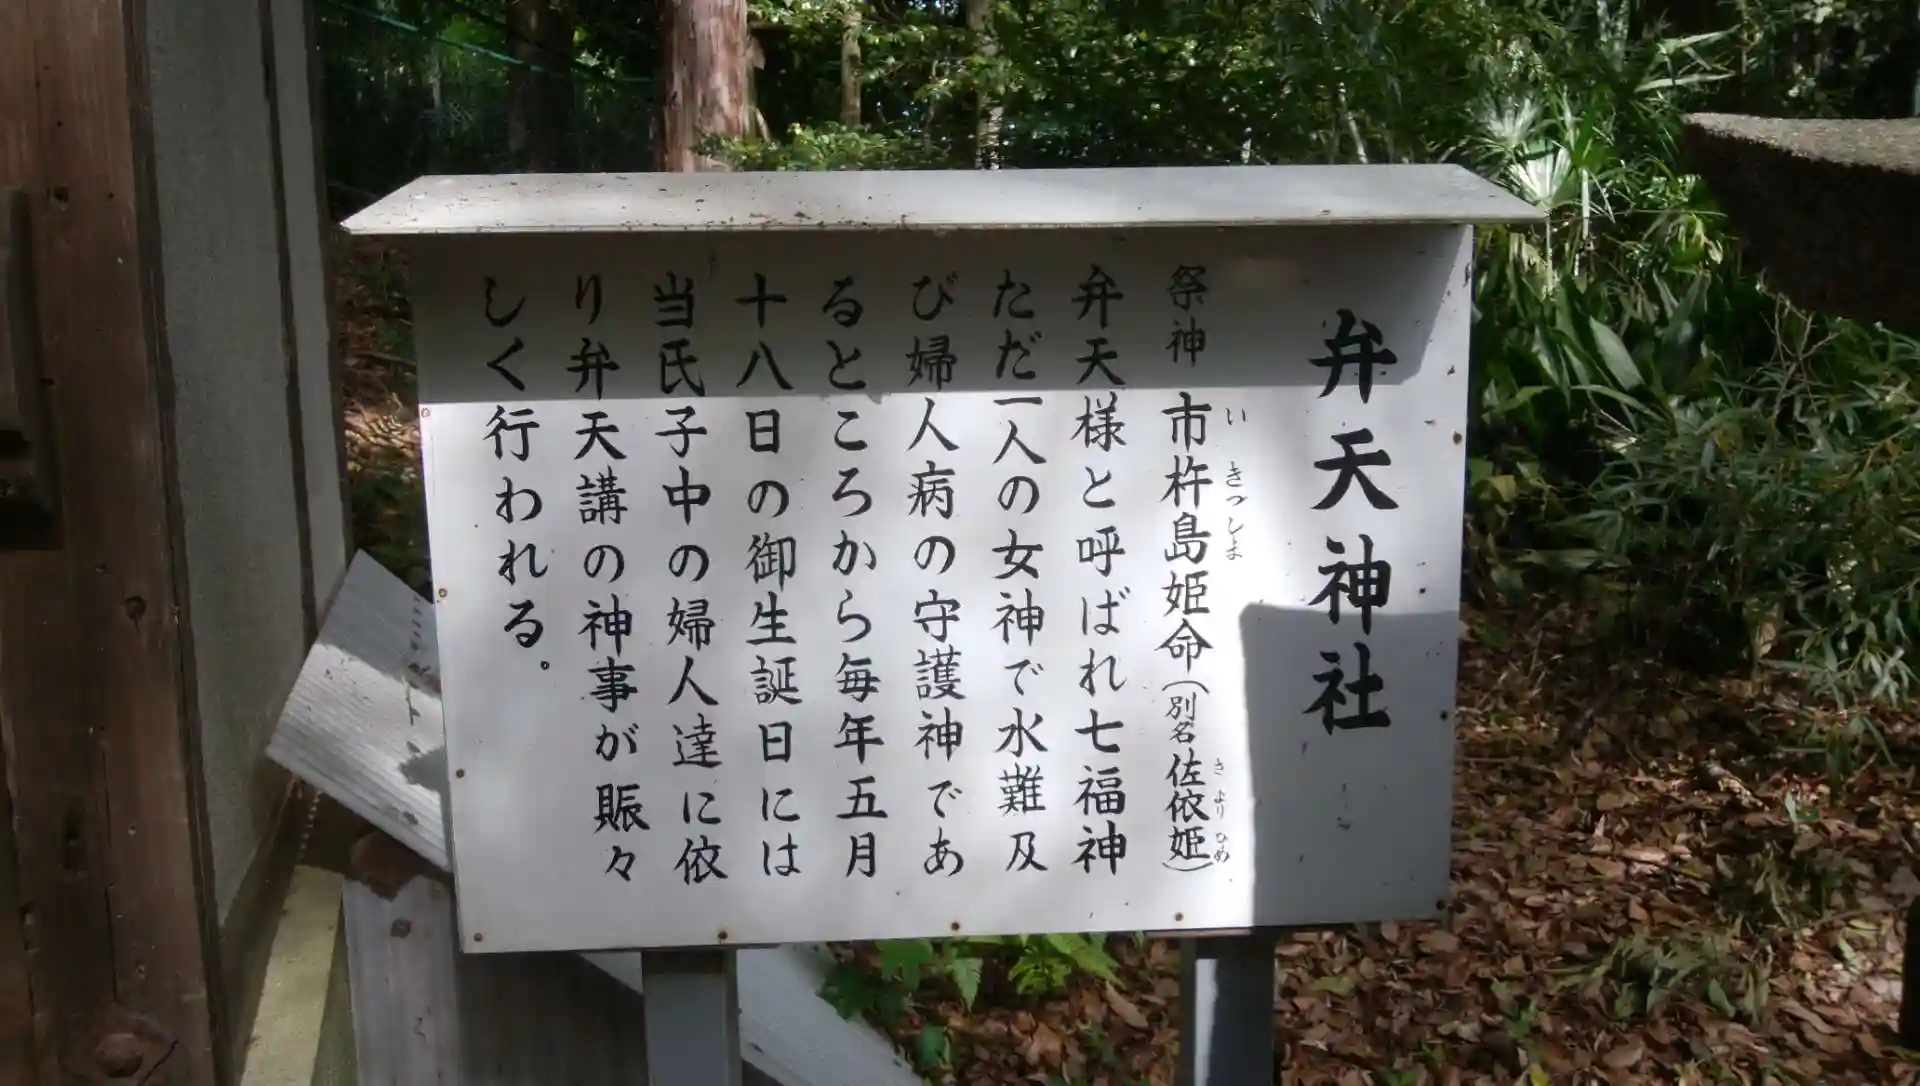 弁天神社
祭神 市杵島姫命(別名佐依姫)
い きづしま
さよりひめ
弁天様と呼ばれ七福神
ただ一人の女神で水難及
び婦人病の守護神であ
るところから毎年五月
十八日の御生誕日には
当氏子中の婦人達に依
り弁天講の神事が賑々
しく行われる.